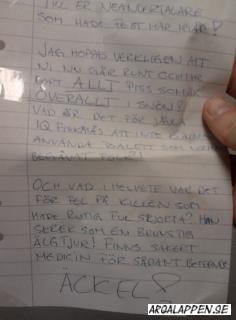 TILL ER NEANDERTALARE
SOM HADE FEST HÄR IGÅR!
JAG HOPPAS VERKLIGEN ATT
NI NU GÅR RUNT OCH
ALLT PISS SOM ÄR
ÖVERALLT I SNÖN!
VAD ÄR DET FÖR JÄVLA
IQ ATT INTE KUNNA
ANVÄNDA TOALETT SOM
FOLK?!
OCH VAD I HELVETE VAR DET
FÖR FEL PÅ KILLEN SOM
HADE RUTIG FUL SKJORTA? HAN
SKREK SOM EN BRUNSTIG
ÄLGTJUR! FINNS SÄKERT
MEDICIN FÖR SÅDANT BETEENDE
ÄCKEL!
ARGALAPPEN.SE